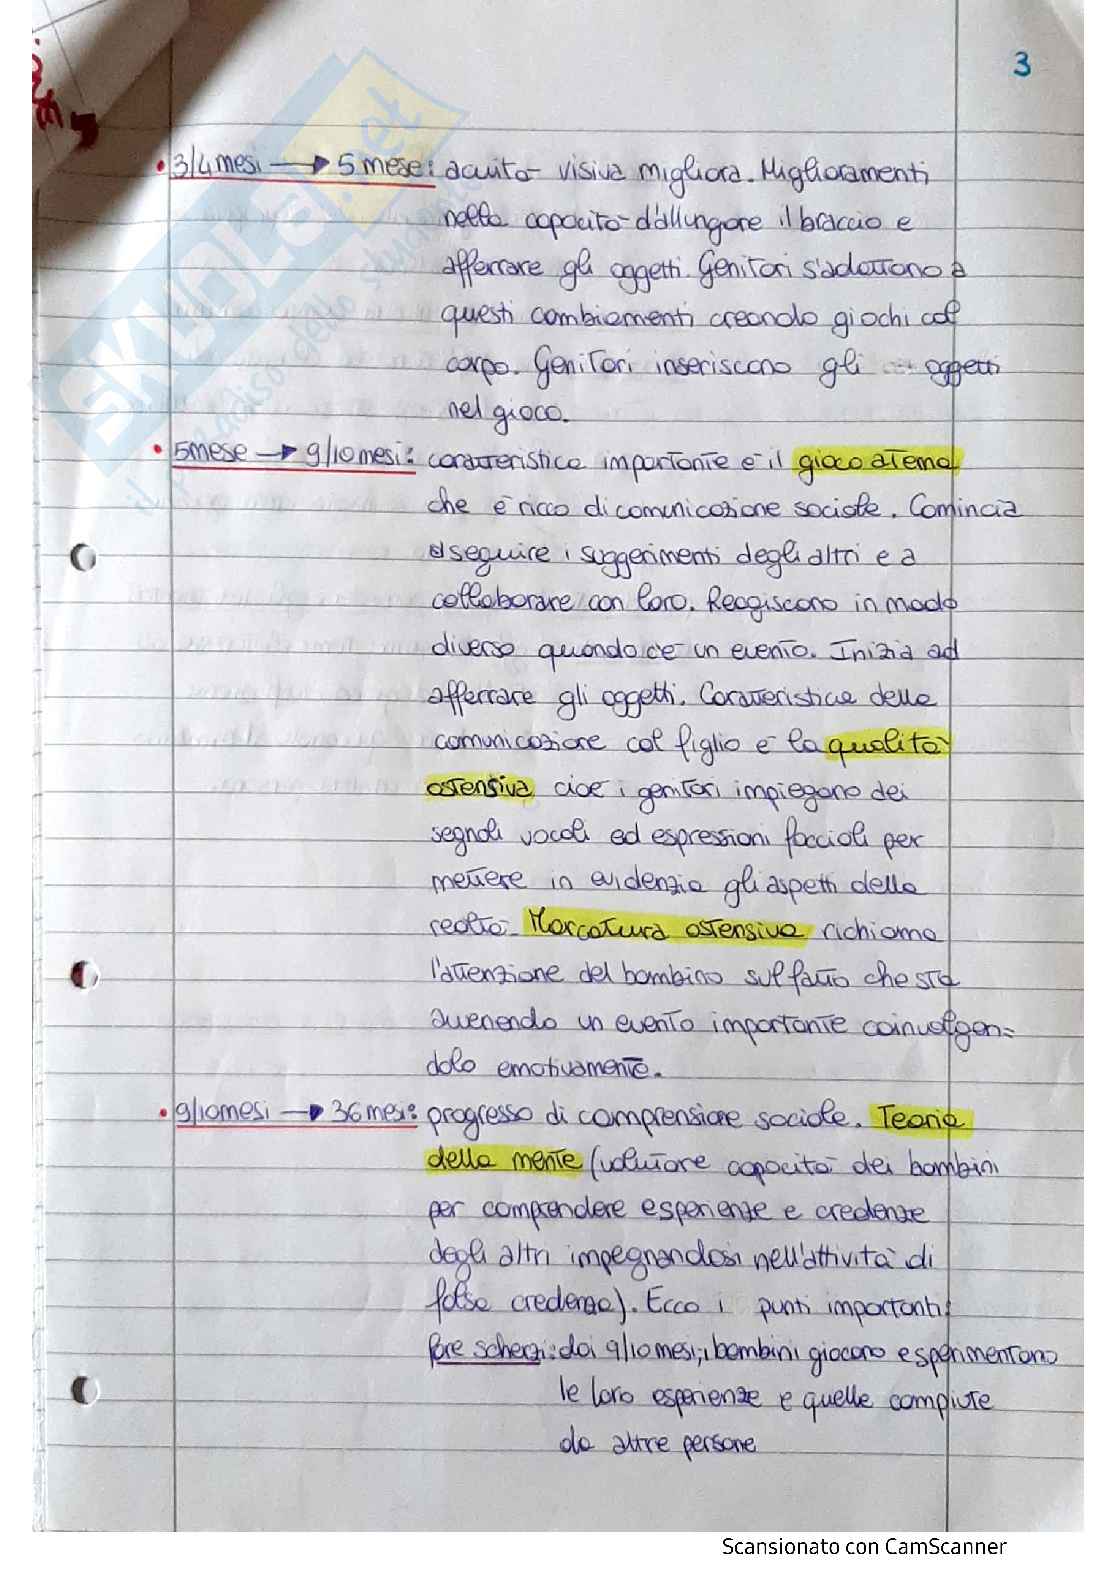 3
• 3/4 mesi → 5 mese: acuità visiva migliora. Miglioramenti
nella capacità d'allungare il braccio e
afferrare gli oggetti. Genitori s'adattano a
questi cambiamenti creando giochi col
corpo. Genitori inseriscono gli oggetti
nel gioco.
• 5 mese → 9/10 mesi: caratteristica importante è il gioco a tema
che è ricco di comunicazione sociale. Comincia
a seguire i suggerimenti degli altri e a
collaborare con loro. Reagiscono in modo
diverso quando c'è un evento. Inizia ad
afferrare gli oggetti. Caratteristica della
comunicazione col figlio è la qualità
ostensiva cioè i genitori impiegano dei
segnali vocali ed espressioni facciali per
mettere in evidenzia gli aspetti della
realtà. Marcatura ostensiva richiama
l'attenzione del bambino sul fatto che sta
avvenendo un evento importante coinvolgen=
dolo emotivamente.
• 9/10 mesi → 36 mesi: progresso di comprensione sociale. Teoria
della mente (valutare capacità dei bambini
per comprendere esperienze e credenze
degli altri impegnandosi nell'attività di
falsa credenza). Ecco i punti importanti:
fare scherzi: dai 9/10 mesi, i bambini giocano e sperimentano
le loro esperienze e quelle compiute
da altre persone
SKUOLA.net
il paradiso dello studente
Scansionato con CamScanner